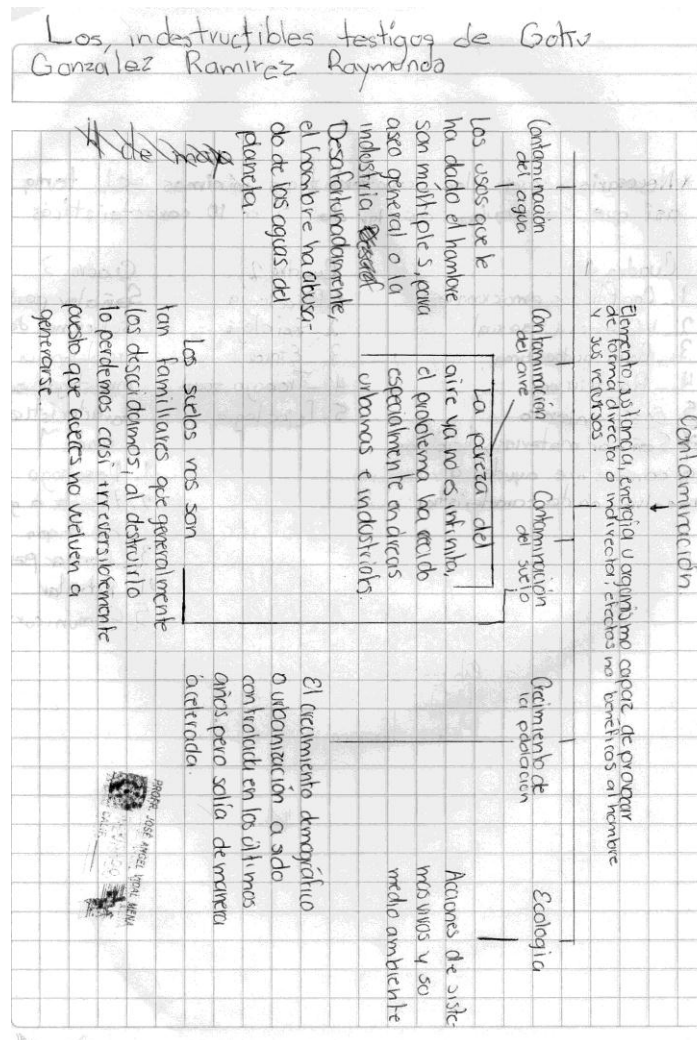 Los, indestructibles testigos de Goku
González Ramirez Raymundo
Contaminación
Elemento, sustancia, energia u organismo capaz de provocar
de forma directa o indirecta, efectos no benéficos al hombre
y sus recursos.
Contaminación
del agua
Los usos que le
ha dado el hombre
son múltiples, para
aseo general o la
industria
Desafortunadamente,
el hombre ha abusa-
do de las aguas del
planeta.
Contaminación
del aire
La pureza del
aire ya no es infinita,
el problema ha crecido
especialmente en áreas
urbanas e industriales.
Contaminación
del suelo
Los suelos nos son
tan familiares que generalmente
los descuidamos, al destruirlo
lo perdemos casi irreversiblemente
puesto que aveces no vuelven a
generarse.
Crecimiento de
la población
El crecimiento demográfico
o urbanización a sido
controlada en los últimos
años, pero salía de manera
acelerada.
Ecologia
Acciones de siste-
mas vivos y su
medio ambiente
PROFR. JOSÉ ANGEL VIDAL MENA